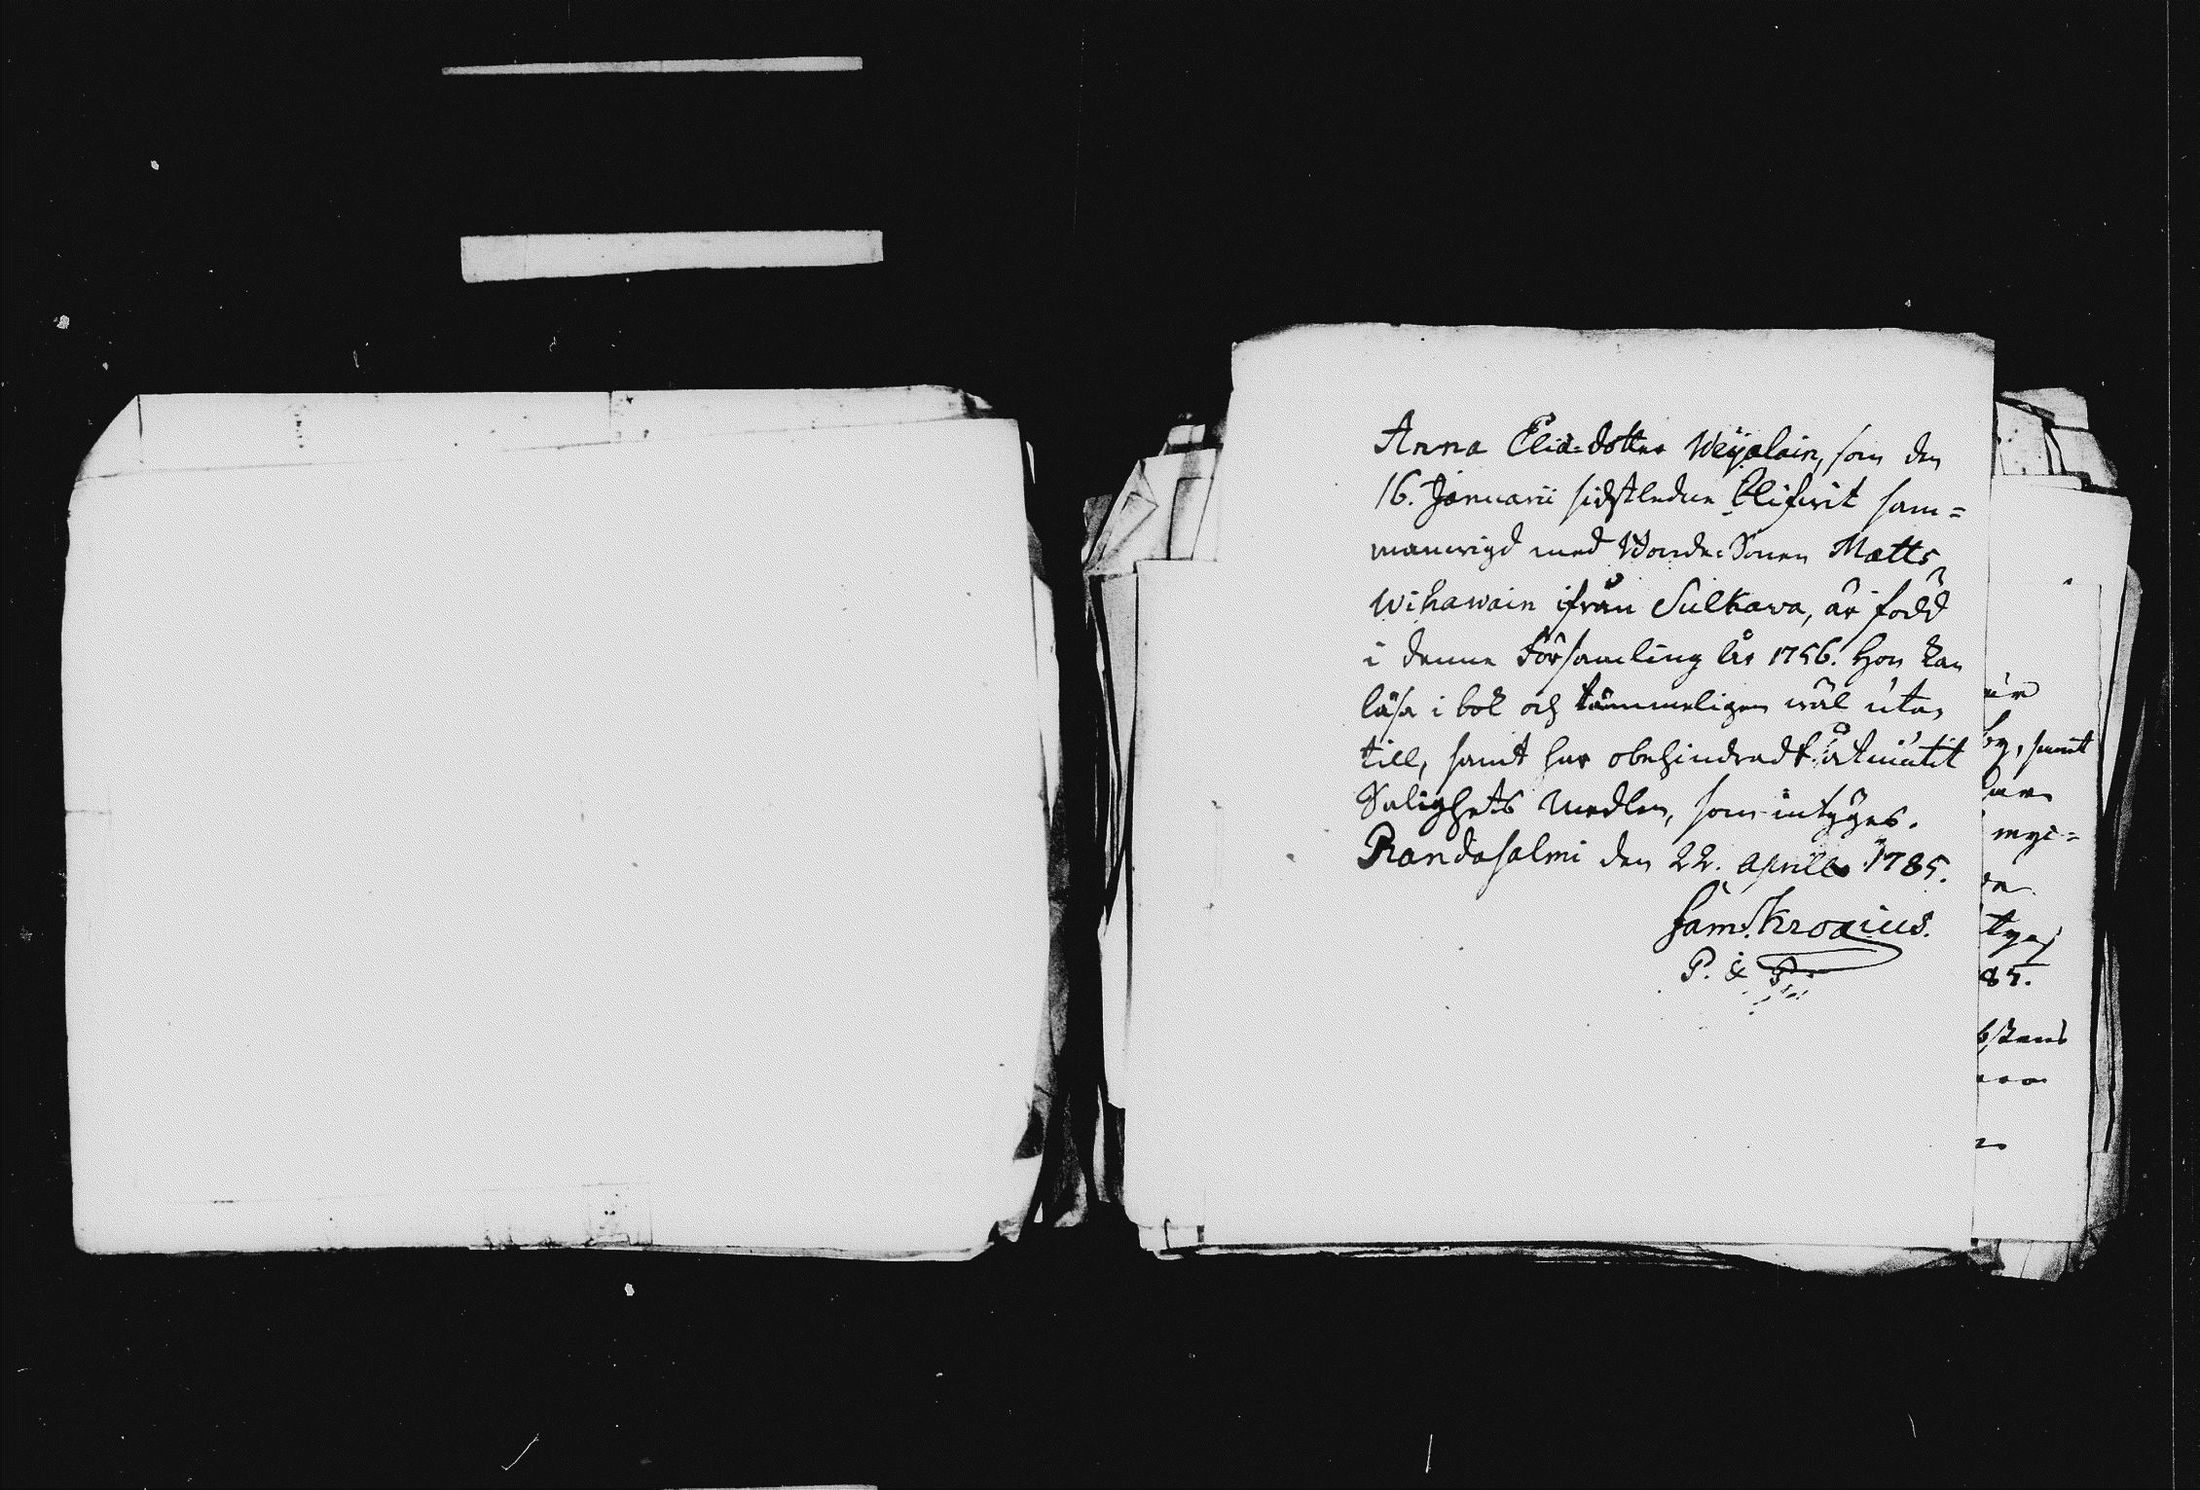 Anna Elia-dotter Weijalain, som den
16. Januarii sidstledne blifwit sam=
manwigd med Bonde-Sonen Matts
Wihawain ifrån Sulkava, är född
i denne Församling år 1756. Hon kan
läsa i bok och tämmeligen wäl utan
till, samt har obehindradt åtniutit
Salighets Medlen, som intyges.
Randasalmi den 22. Aprilis 1785.
Sam. Krogius.
P. & P.
är
by, samt
myc=
85.